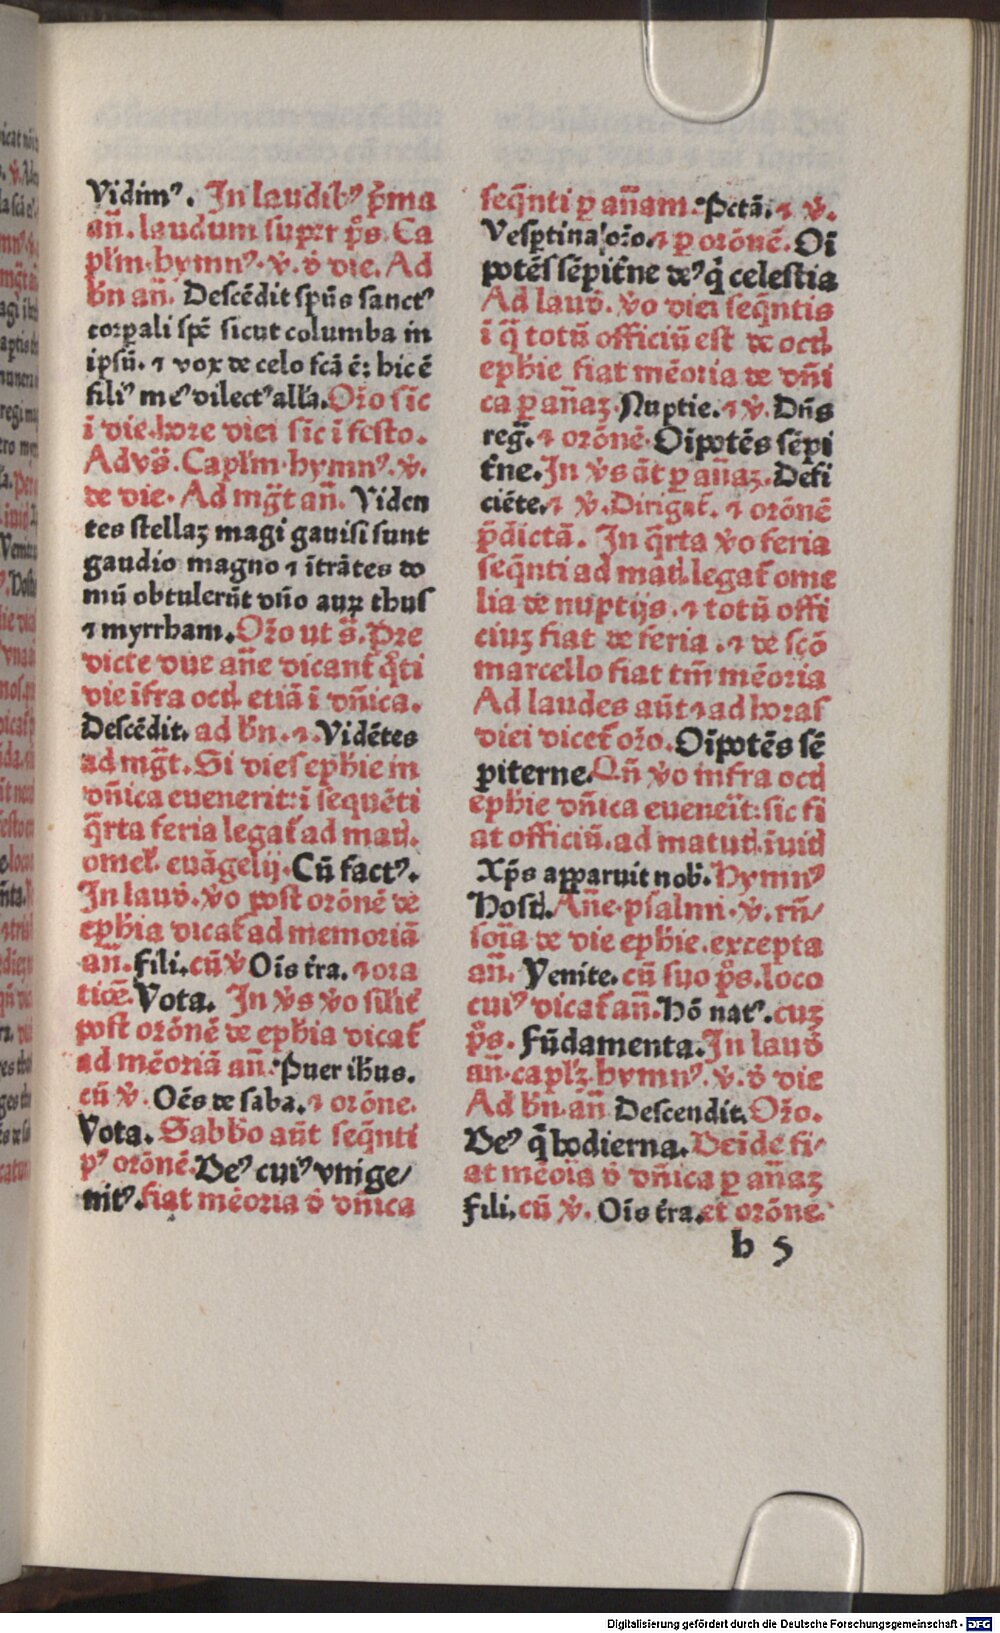 Vidimꝰ. In laudibꝰ p̃ma
añ. laudum super p̃s. Ca
pl'm. hymnꝰ. v̾. ð die. Ad
b̃n añ. Descẽdit spũs sanctꝰ
corpali spẽ sicut columba in
ipsũ. ⁊ vox de celo fcã ẽ: hic ẽ
filiꝰ meꝰ dilectꝰ all'a. Or̃o sic̃
ĩ die. hore diei sic̃ ĩ festo.
Ad vs̃. Capl'm. hymnꝰ. v̾.
de die. Ad mg̃t añ. Viden
tes stellaʒ magi gauisi sunt
gaudio magno ⁊ ĩtrãtes do
mũ obtulerũt dño auꝝ thus
⁊ myrrham. Or̃o ut s̃. Pre
dicte due añe dicant̃ q̃ti
die ĩfra oct̃. etiã ĩ dñica.
Descẽdit. ad b̃n. ⁊. Vidẽtes
ad mg̃t. Si dies ephie in
dñica euenerit: ĩ sequẽti
q̃rta feria legat̃ ad mat̃.
omel'. euãgelij. Cũ factꝰ.
In laud̃. v̾o post orõnẽ de
ephia dicat̃ ad memoriã
añ. Fili. cũ v̾ Oĩs t̃ra. ⁊ ora
tiõe. Vota. In v̾s v̾o silĩt̃
post orõnẽ de ephia dicat̃
ad mẽoriã añ. Puer ihus.
cũ v̾. Oẽs de saba. ⁊ orõne.
Vota. Sabbo aũt seq̃nti
pꝰ orõnẽ. Deꝰ cuiꝰ vnige/
nitꝰ. fiat mẽoria ð dñica
seq̃nti p añam. Pctã. ⁊ v̾.
Vesp̃tina or̃o. ⁊ p orõnẽ. Oĩ
potẽs sẽpit̃ne deꝰ q̃ celestia
Ad laud̃. v̾o diei seq̃ntis
ĩ q̃ totũ officiũ est de oct̃.
ephie fiat mẽoria de dñi
ca p añaʒ. Nuptie. ⁊ v̾. Dñs
reg̃. ⁊ orõnẽ. Oĩpotẽs sẽpi
t̃ne. In v̾s aũt p añaʒ. Defi
ciẽte. ⁊ v̾. Dirigat̃. ⁊ orõnẽ
p̃dictã. In q̃rta v̾o feria
seq̃nti ad mat̃. legat̃ ome
lia de nuptijs. ⁊ totũ offi
ciuʒ fiat de feria. ⁊ de scõ
marcello fiat tm̃ mẽoria
Ad laudes aũt ⁊ ad horas
diei dicet̃ or̃o. Oĩpotẽs sẽ
piterne. Qñ v̾o infra oct̃
ephie dñica eueneĩt: sic fi
at officiũ. ad matut̃. ĩuit̃
Xp̃s apparuit nob̃. Hymnꝰ
Host̃. Añe. psalmi. v̾. rñ/
soĩa de die ephie. excepta
añ. Venite. cũ suo p̃s. loco
cuiꝰ dicat̃ añ. Hõ natꝰ. cuʒ
p̃s. Fũdamenta. In laud̃
añ. capl'ʒ. hymnꝰ. v̾. ð die
Ad b̃n. añ Descendit. Or̃o.
Deꝰ q̃ hodierna. Deĩde fi/
at mẽoĩs ð dñica p añaʒ
Fili. cũ v̾. Oĩs t̃ra. et orõne.
b 5
Digitalisierung gefördert durch die Deutsche Forschungsgemeinschaft - DFG